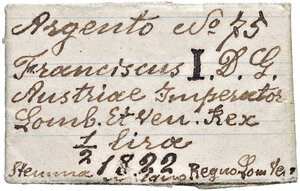 Argento No 75
Franciscus I D. G.
Austriae Imperator
Lomb. Et Ven. Rex
1/2 lira
1822
Stemma Regno Lom Ve.